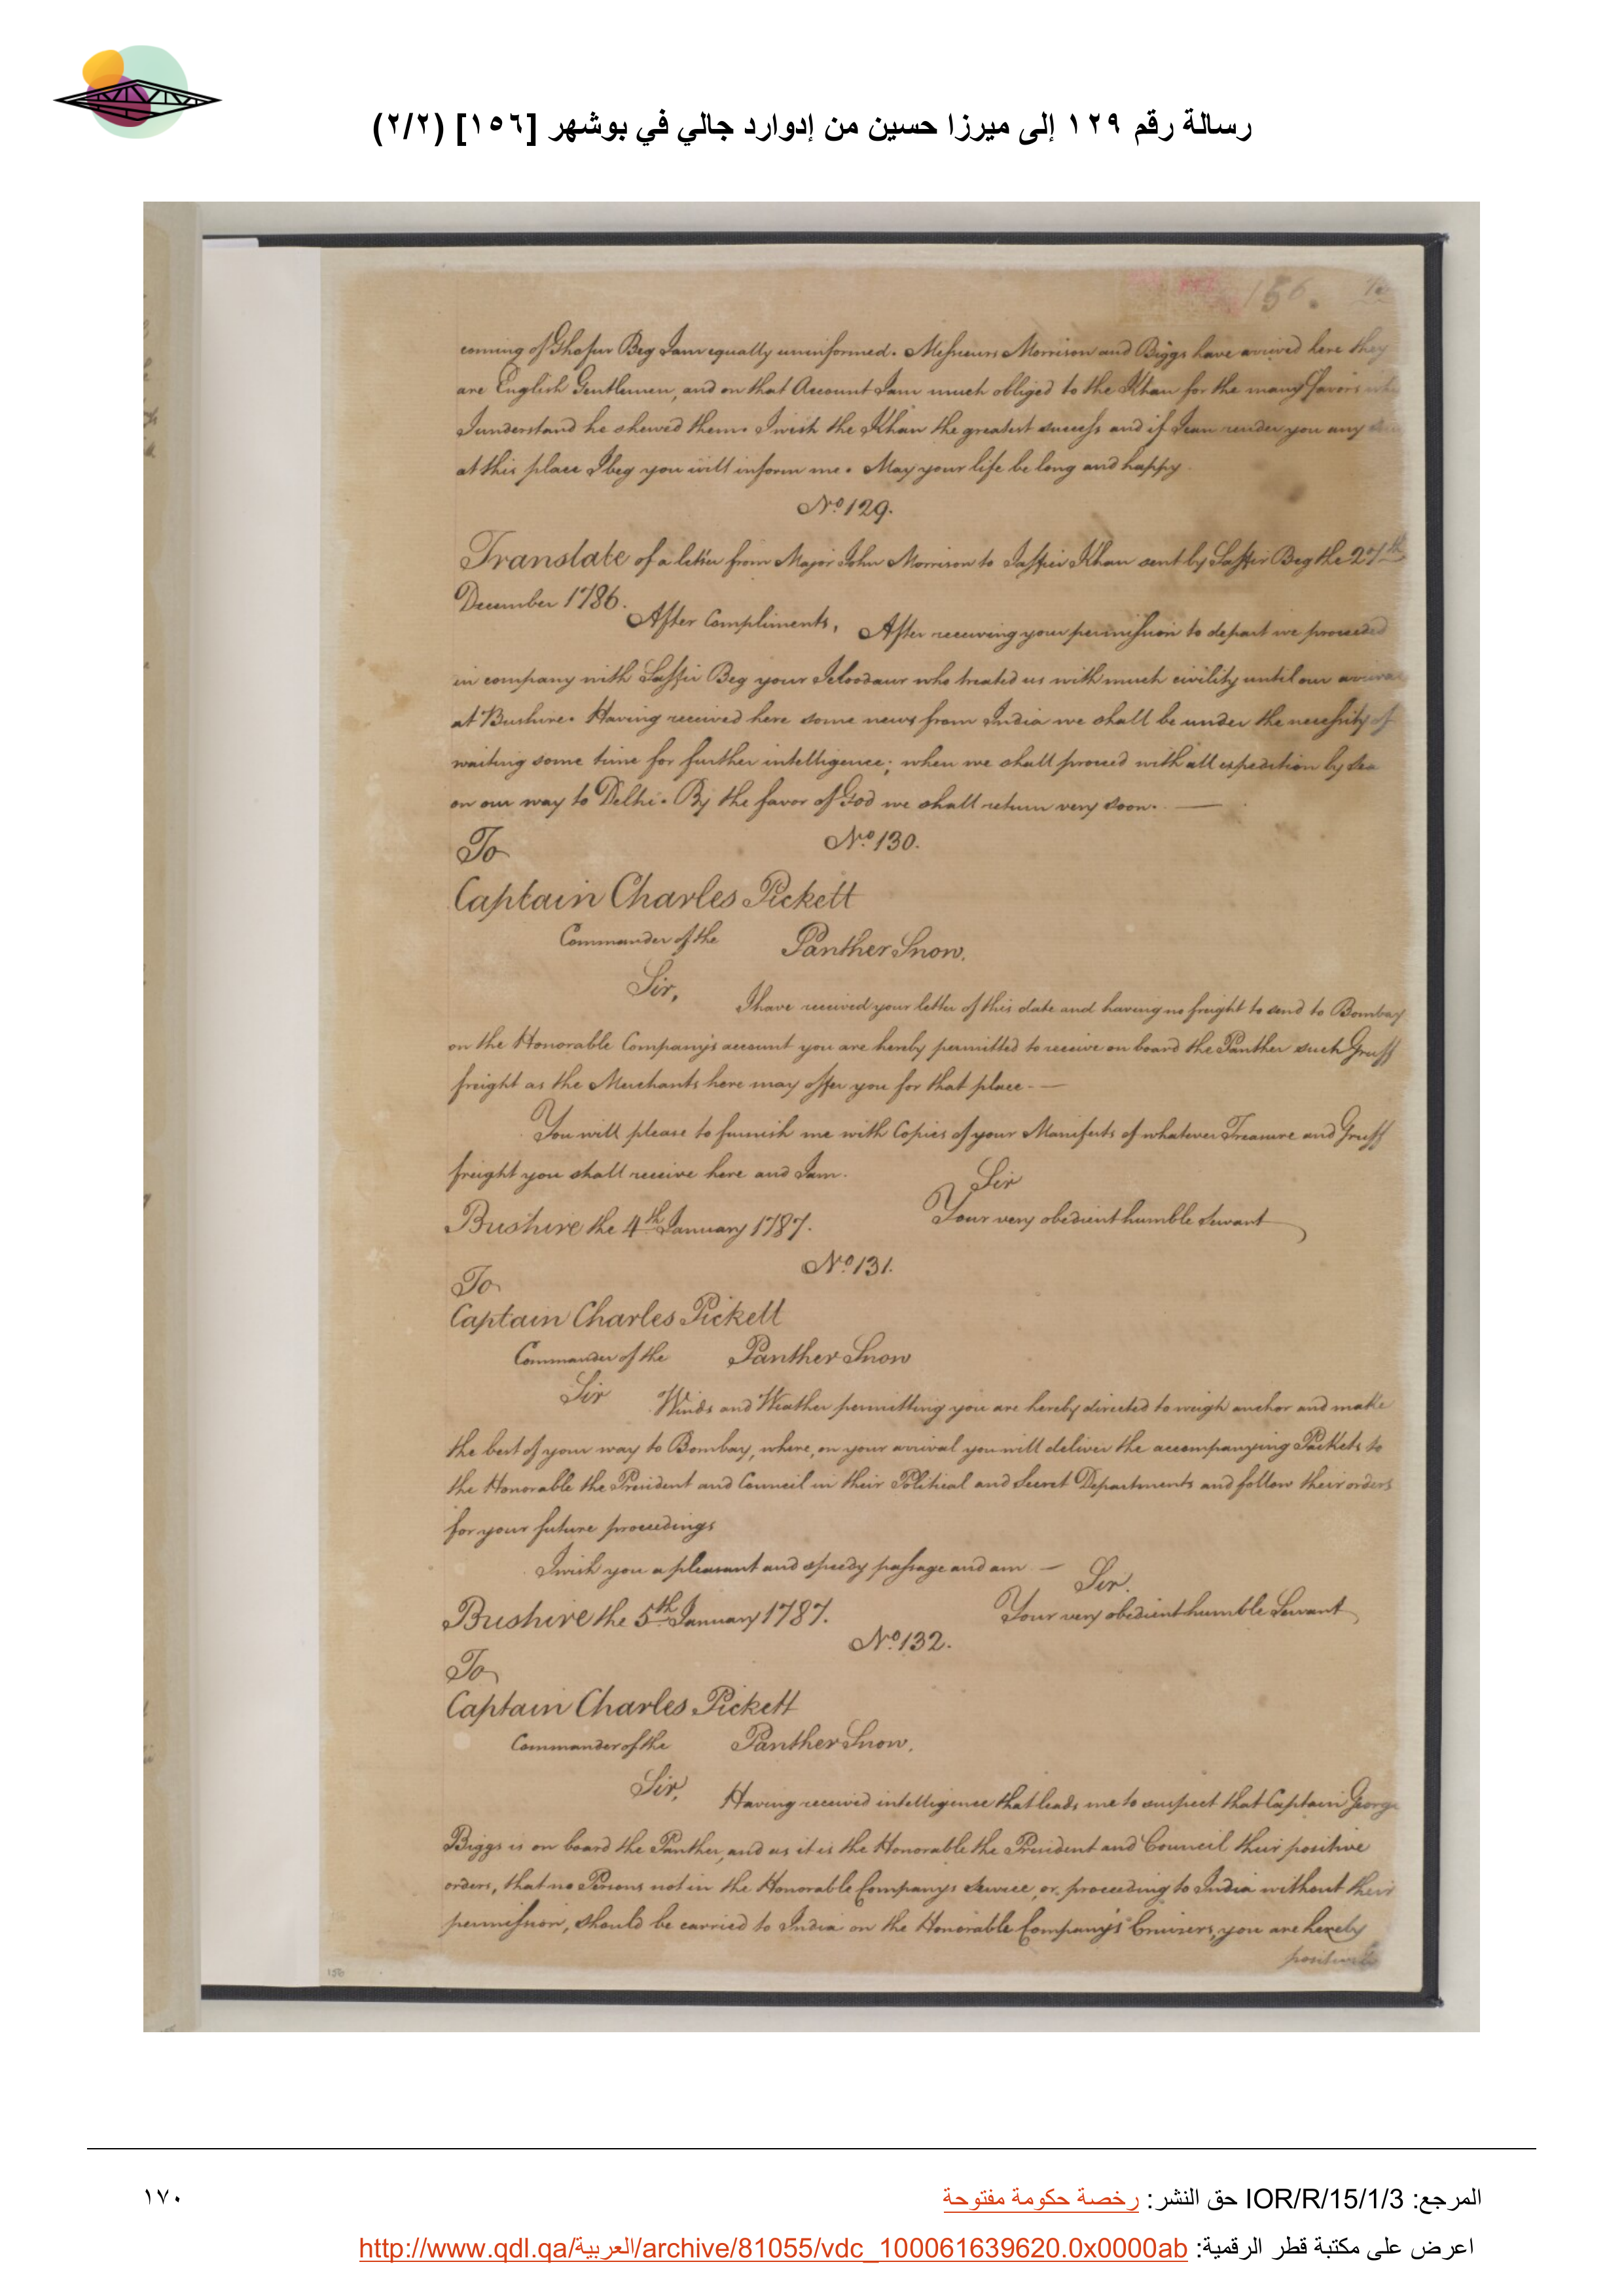 رسالة رقم ١٢٩ إلى ميرزا حسين من إدوارد جالي في بوشهر [١٥٦] (٢/٢)
156.
coming of Ghofur Beg I am equally uninformed. Messieurs Morrison and Biggs have arrived here they
are English Gentlemen, and on that Account I am much obliged to the Khan for the many favors
I understand he shewed them. I wish the Khan the greatest success and if I can render you any
at this place I beg you will inform me. May your life be long and happy
No. 129.
Translate of a letter from Major John Morrison to Jaffier Khan sent by Saffir Beg the 27th
December 1786.
After Compliments, After receiving your permission to depart we proceeded
in company with Saffir Beg your Jeloodaur who treated us with much civility until our arrival
at Bushire. Having received here some news from India we shall be under the necessity of
waiting some time for further intelligence; when we shall proceed with all expedition by sea
on our way to Delhi. By the favor of God we shall return very soon.
No. 130.
To
Captain Charles Pickett
Commander of the Panther Snow.
Sir,
I have received your letter of this date and having no freight to send to Bombay
on the Honorable Company's account you are hereby permitted to receive on board the Panther such Gruff
freight as the Merchants here may offer you for that place.
You will please to furnish me with Copies of your Manifests of whatever Treasure and Gruff
freight you shall receive here and I am.
Sir
Your very obedient humble Servant
Bushire the 4th January 1787.
No. 131.
To
Captain Charles Pickett
Commander of the Panther Snow
Sir
Winds and Weather permitting you are hereby directed to weigh anchor and make
the best of your way to Bombay, where, on your arrival you will deliver the accompanying Packets to
the Honorable the President and Council in their Political and Secret Departments and follow their orders
for your future proceedings
I wish you a pleasant and speedy passage and am —
Sir.
Your very obedient humble Servant
Bushire the 5th January 1787.
No. 132.
To
Captain Charles Pickett
Commander of the Panther Snow.
Sir,
Having received intelligence that leads me to suspect that Captain George
Biggs is on board the Panther, and as it is the Honorable the President and Council their positive
orders, that no Persons not in the Honorable Company's Service, or proceeding to India without their
permission, should be carried to India on the Honorable Company's Cruisers, you are hereby
positively
156
المرجع: IOR/R/15/1/3 حق النشر: رخصة حكومة مفتوحة
١٧٠
اعرض على مكتبة قطر الرقمية: http://www.qdl.qa/العربية/archive/81055/vdc_100061639620.0x0000ab